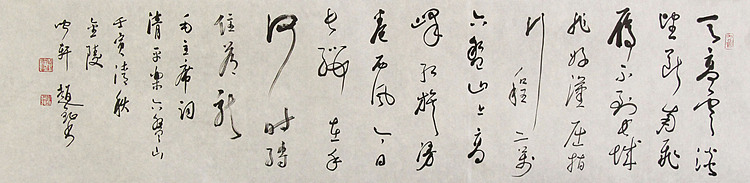 天高云淡
望断南飞
雁不到长城
非好汉屈指
行程二万
六盘山上高
峰红旗漫
卷西风今日
长缨在手
何时缚
住苍龙
毛主席词
清平乐六盘山
壬寅清秋
金陵